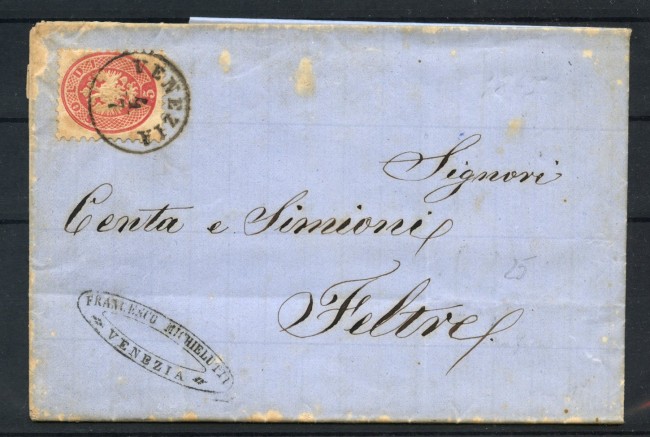 VENEZIA
Signori
Centa e Simioni
Feltre
25
FRANCESCO MICHIELUTTI
VENEZIA